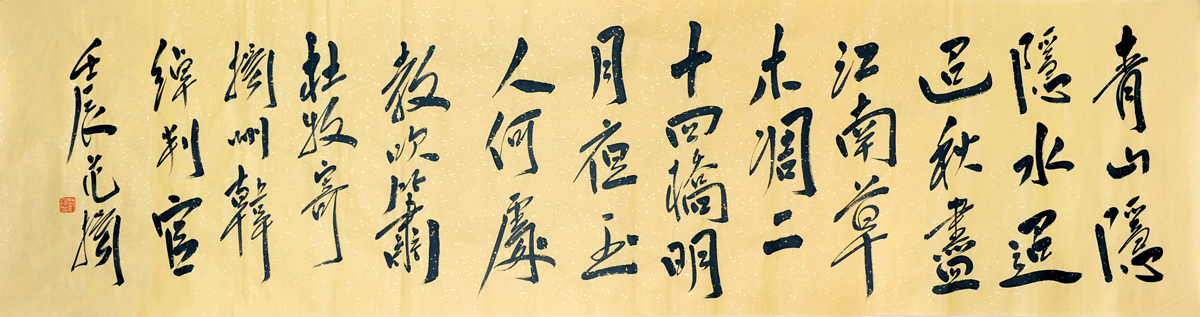 青山隱
隱水迢
迢秋盡
江南草
木凋二
十四橋明
月夜玉
人何處
教吹簫
杜牧寄
揚州韓
綽判官
壬辰范揚